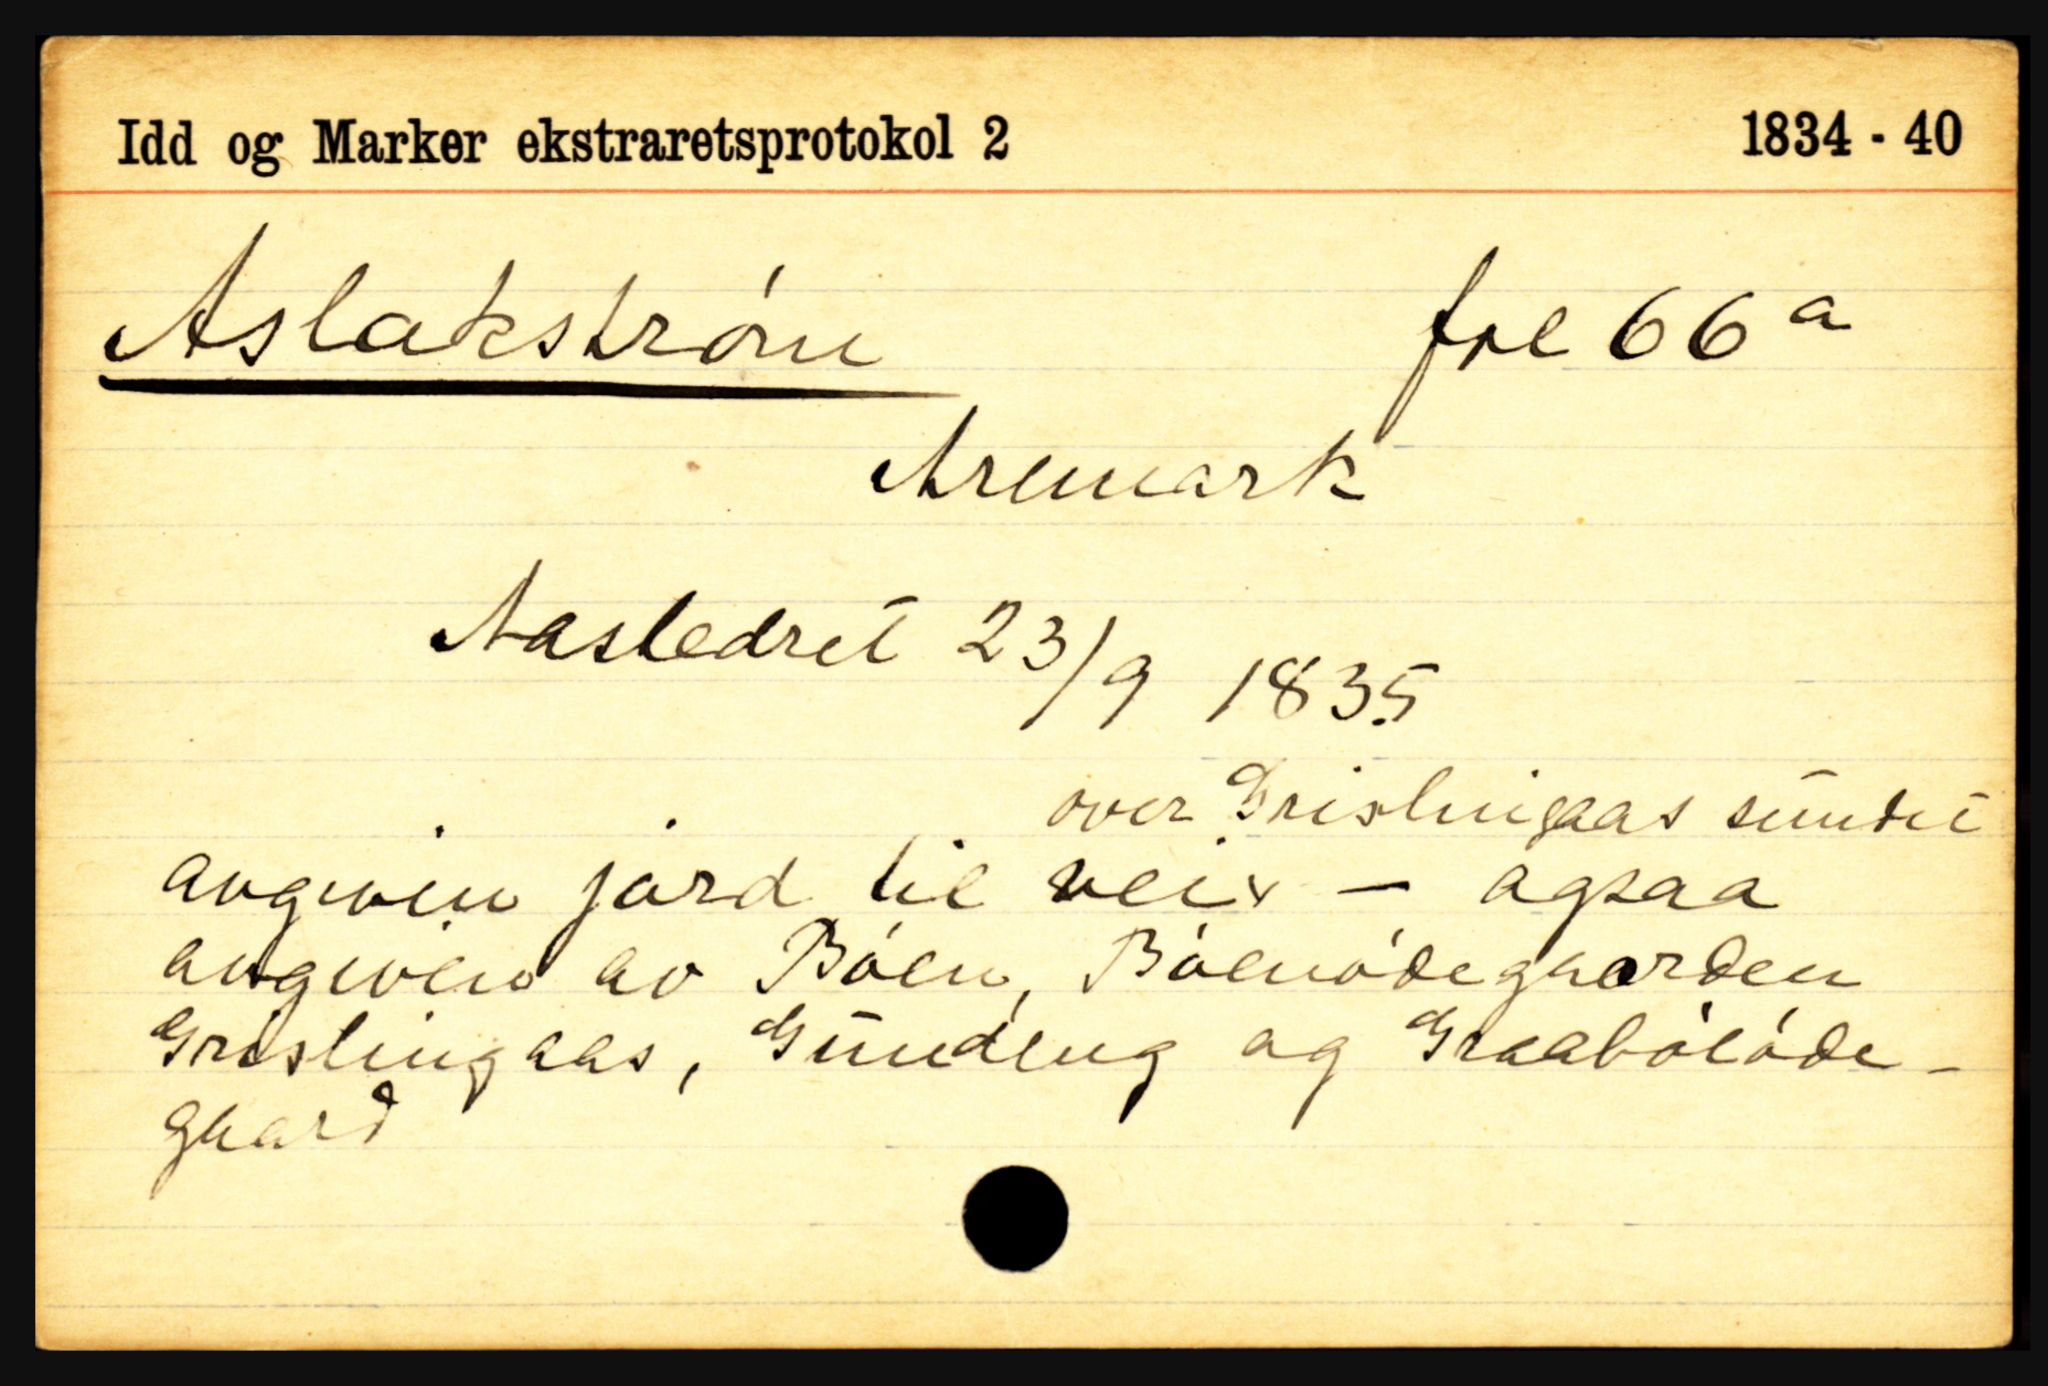 Idd og Marker ekstraretsprotokol 2 1834 - 40
Aslakstrøm fol 66 a
Aremark
Aastedret 23/9 1835
over Grislingaas sundet
avgiven jord til vei – ogsaa
avgiven av Bøen, Bøenødegaarden
Grislingaas, Gundeng og Graabøløde-
gaard